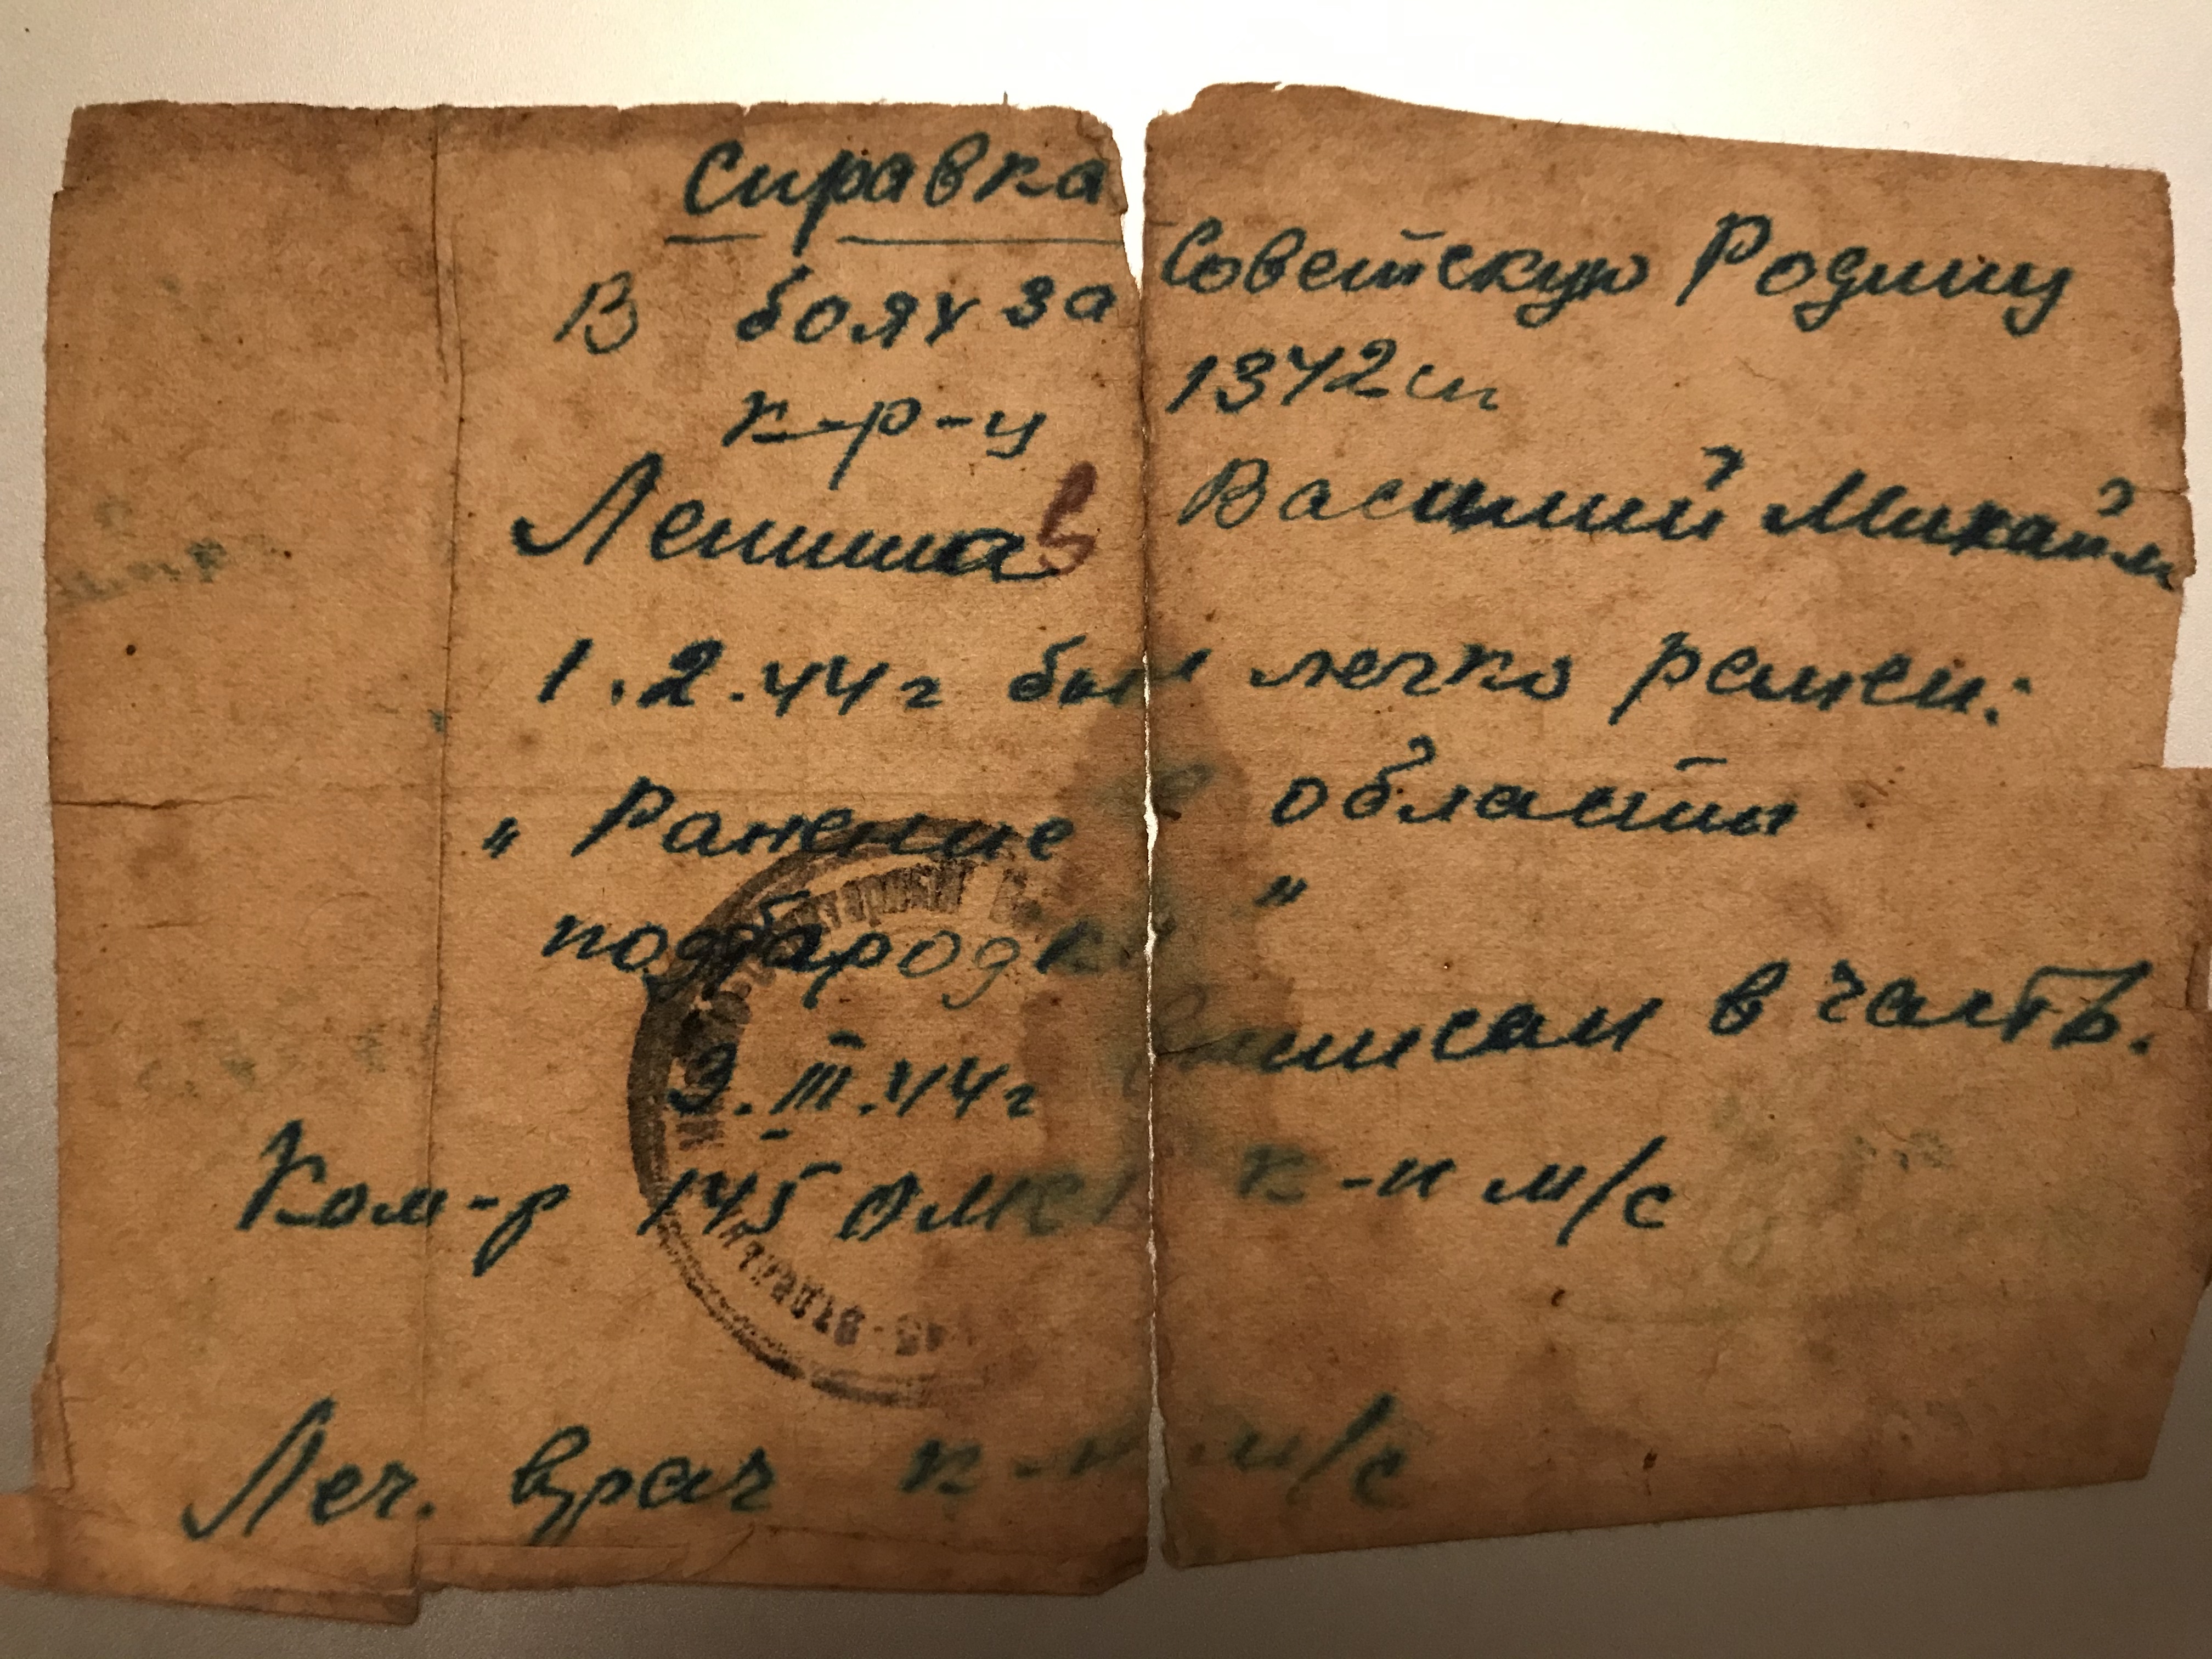 Справка
В боях за Советскую Родину
к-р-ц 1342 сп
Василий Михайл
1.2.44г был легко ранен:
„ Ранение в области
подбародка "
3.III.44г выписан в часть.
Ком-р 145 ОМСБ к-н м/с
Леч. врач к-н м/с